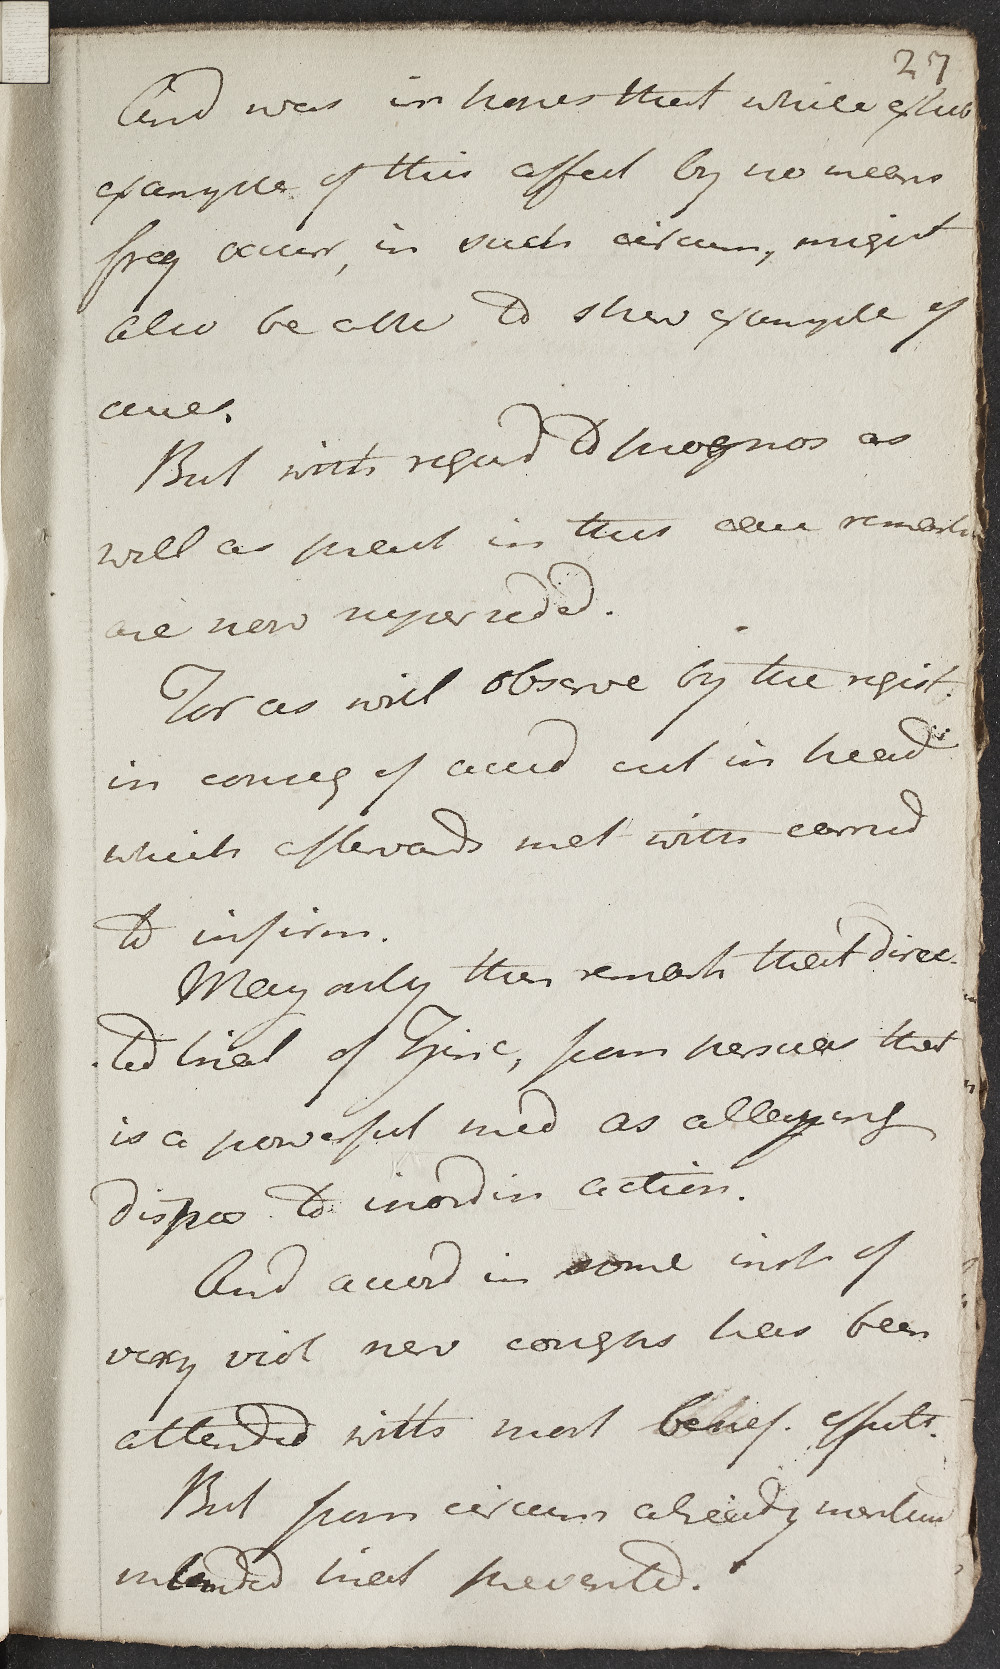 27
And was in hopes that while exhib
example of this affect by no means
freq occurr, in such circum, might
also be able to shew example of
cures.
But with regard to prognos as
well as treat in this case remarks
are now superseded.
For as will observe by the regist.
in conseq of accid cut in head
which afterwards met with carried
to infirm.
May only then remark that direc-
ted trial of Zinc, from persuas that
is a powerful med as allaying
dispos to inordin action.
And accord in some inst of
very viol nerv coughs has been
attended with most benef. effects.
But from circum already mention
intended trial prevented.